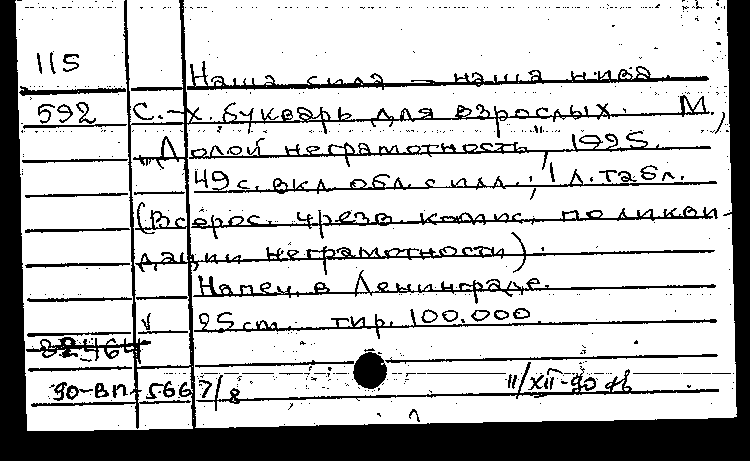 115
Наша сила – наша нива.
592 С.-х. букварь для взрослых. М,
„Долой неграмотность", 1925.
49 с. вкл. обл. с илл.; 1 л. табл.
(Всерос. чрезв. комис. по ликви-
дации неграмотности).
Напеч. в Ленинграде.
v 25 cm. тир. 100.000.
32464
90-ВП-5667/8 11/XII-90